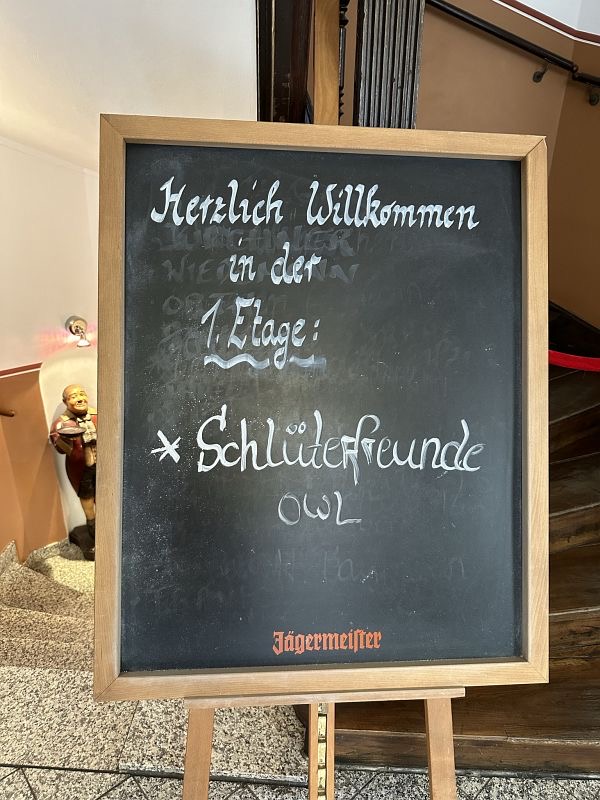 Herzlich Willkommen
in der
1. Etage:
* Schlüterfreunde
OWL
Jägermeister